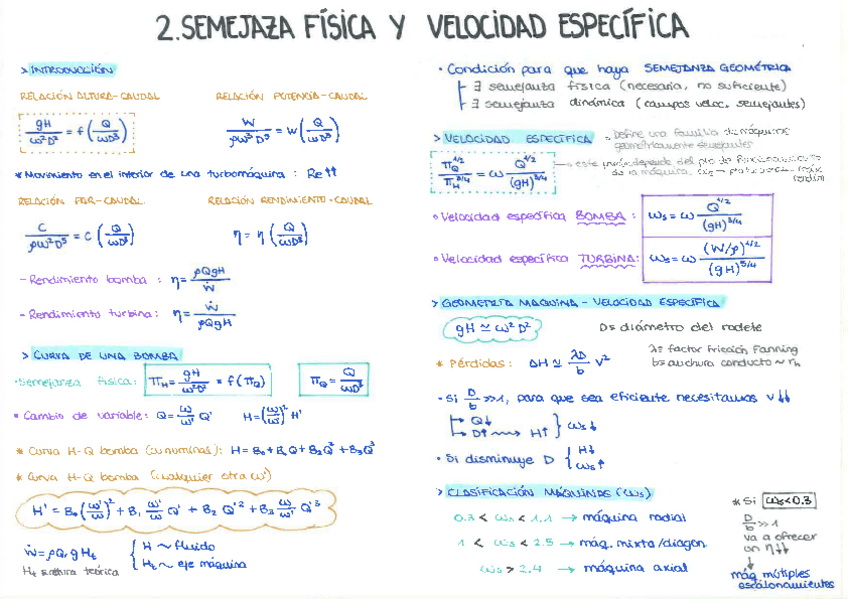 2. SEMEJAZA FÍSICA Y VELOCIDAD ESPECÍFICA
> INTRODUCCIÓN
RELACIÓN ALTURA-CAUDAL
RELACIÓN POTENCIA-CAUDAL
gH / ω²D² = f (Q / ωD³)
Ẇ / ρω³D⁵ = w (Q / ωD³)
* Movimiento en el interior de una turbomáquina : Re ↑↑
RELACIÓN PAR-CAUDAL
RELACIÓN RENDIMIENTO-CAUDAL
C / ρω²D⁵ = C (Q / ωD³)
η = η (Q / ωD³)
- Rendimiento bomba : η = ρQgH / Ẇ
- Rendimiento turbina : η = Ẇ / ρQgH
> CURVA DE UNA BOMBA
· Semejanza física: Π_H = gH / ω²D² = f(Π_Q)
Π_Q = Q / ωD³
* Cambio de variable: Q = ω/ω' Q' H = (ω/ω')² H'
* Curva H-Q bomba (ω nominas): H = B₀ + B₁Q + B₂Q² + B₃Q³
* Curva H-Q bomba (cualquier otra ω')
H' = B₀ (ω'/ω)² + B₁ ω'/ω Q' + B₂ Q'² + B₃ ω/ω' Q'³
ẇ = ρQ, gHₜ { H ~ fluido
Hₜ ~ eje máquina
Hₜ = altura teórica
· Condición para que haya SEMEJANZA GEOMÉTRICA
∃ semejanza física (necesaria, no suficiente)
∃ semejanza dinámica (campos veloc. semejantes)
> VELOCIDAD ESPECÍFICA - Define una familia de máquinas
geométricamente semejantes
Π_Q^1/2 / Π_H^3/4 = ω Q^1/2 / (gH)^3/4
→ este depende del pto de funcionamiento
de la máquina, ωs → máx
rendim
· Velocidad específica BOMBA : ωs = ω Q^1/2 / (gH)^3/4
· Velocidad específica TURBINA: ωs = ω (Ẇ/ρ)^1/2 / (gH)^5/4
> GEOMETRÍA MÁQUINA - VELOCIDAD ESPECÍFICA
gH ≃ ω²D² D = diámetro del rodete
* Pérdidas : ΔH ≃ λD/b v²
λ = factor fricción Fanning
b = anchura conducto ~ rₕ
· Si D/b >> 1, para que sea eficiente necesitamos v ↓↓
→ Q↓
→ D↑ → H↑ } ωs↓
· Si disminuye D { H↓
ωs↑
> CLASIFICACIÓN MÁQUINAS (ωs)
0.3 < ωs < 1.1 → máquina radial
1 < ωs < 2.5 → máq. mixta/diagon.
ωs > 2.4 → máquina axial
* Si ωs < 0.3
D/b >> 1
va a ofrecer
un η↓↓
máq múltiples
escalonamientos